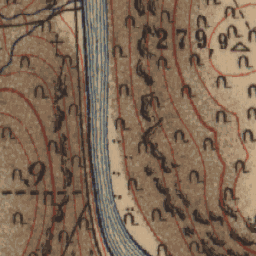 279,9
9